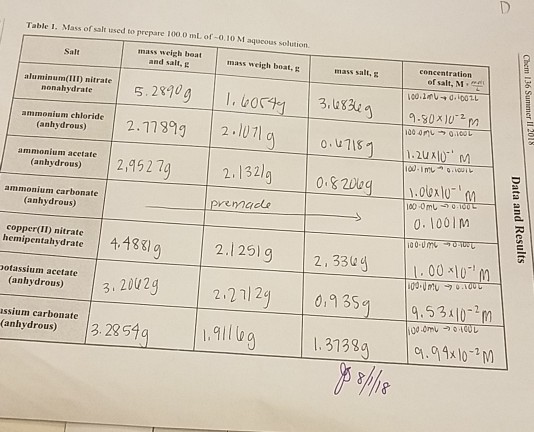 D
Chem 136 Summer II 2018
Data and Results
Table 1. Mass of salt used to prepare 100.0 mL of ~0.10 M aqueous solution.
Salt
mass weigh boat
and salt, g
mass weigh boat, g
mass salt, g
concentration
of salt, M
aluminum(III) nitrate
nonahydrate
5.2890g
1.6054g
3.6836g
100.2mL → 0.1002L
9.80x10⁻²M
ammonium chloride
(anhydrous)
2.7789g
2.1071g
0.6718g
100.0mL → 0.100L
1.26x10⁻¹M
ammonium acetate
(anhydrous)
2.9527g
2.1321g
0.8206g
100.1mL → 0.1001L
1.06x10⁻¹M
ammonium carbonate
(anhydrous)
premade
100.0mL → 0.100L
0.1001M
copper(II) nitrate
hemipentahydrate
4.4881g
2.1251g
2.336g
100.0mL → 0.100L
1.00x10⁻¹M
potassium acetate
(anhydrous)
3.2062g
2.2712g
0.935g
100.0mL → 0.100L
9.53x10⁻²M
assium carbonate
(anhydrous)
3.2854g
1.9116g
1.3738g
100.0mL → 0.100L
9.94x10⁻²M
8/1/18